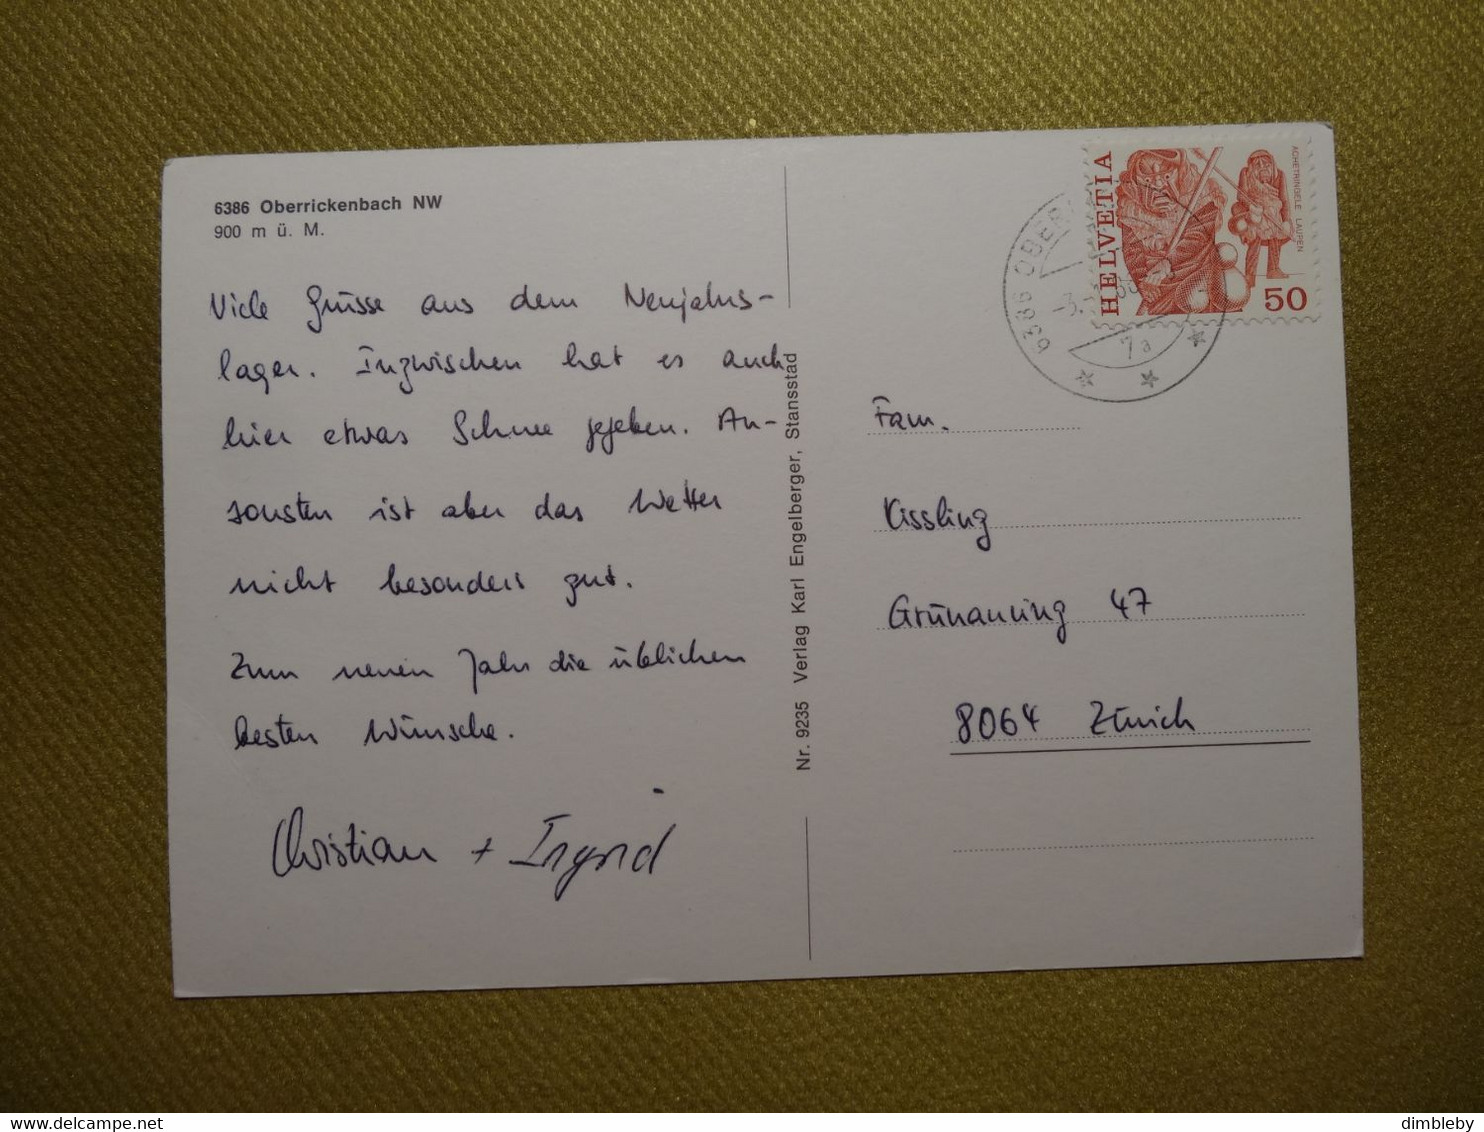 6386 Oberrickenbach NW
900 m ü. M.
Viele Grüsse aus dem Neujahrs-
lager. Inzwischen hat es auch
hier etwas Schnee gegeben. An-
sonsten ist aber das Wetter
nicht besonders gut.
Zum neuen Jahr die üblichen
besten Wünsche.
Christian + Ingrid
Nr. 9235 Verlag Karl Engelberger, Stansstad
HELVETIA
ACHETRINGELE LAUPEN
50
6386 OBER
-3.
7a
Fam.
Kissling
Grünauring 47
8064 Zürich
delcampe.net
dimbleby